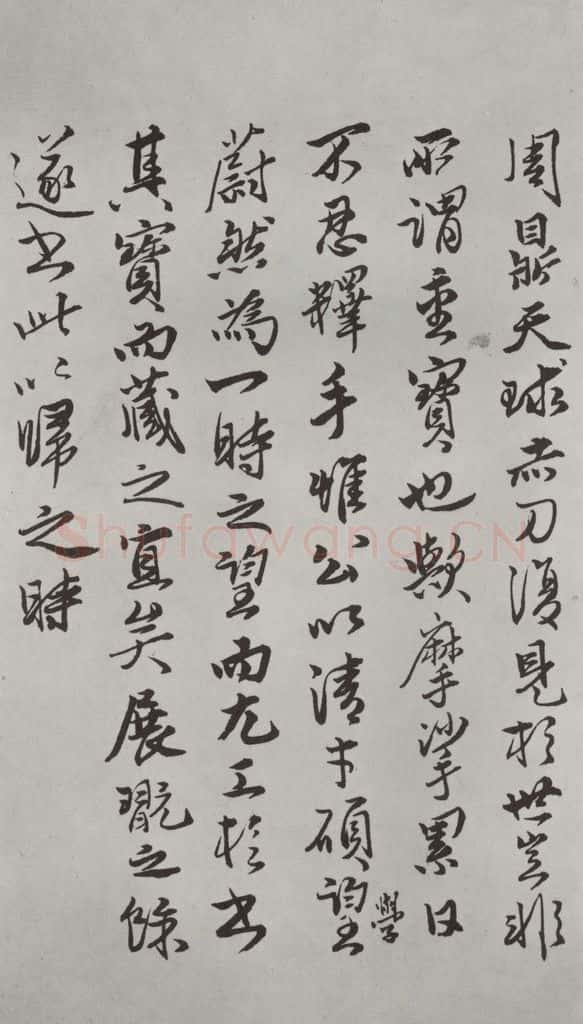 周鼎天球赤刀復見於世豈非
所謂重寶也歟摩挲累日
不忍釋手惟公以清才碩望
學
蔚然為一時之望而尤工於書
其寶而藏之宜矣展翫之餘
遂書此以歸之時
Shufawang.CN